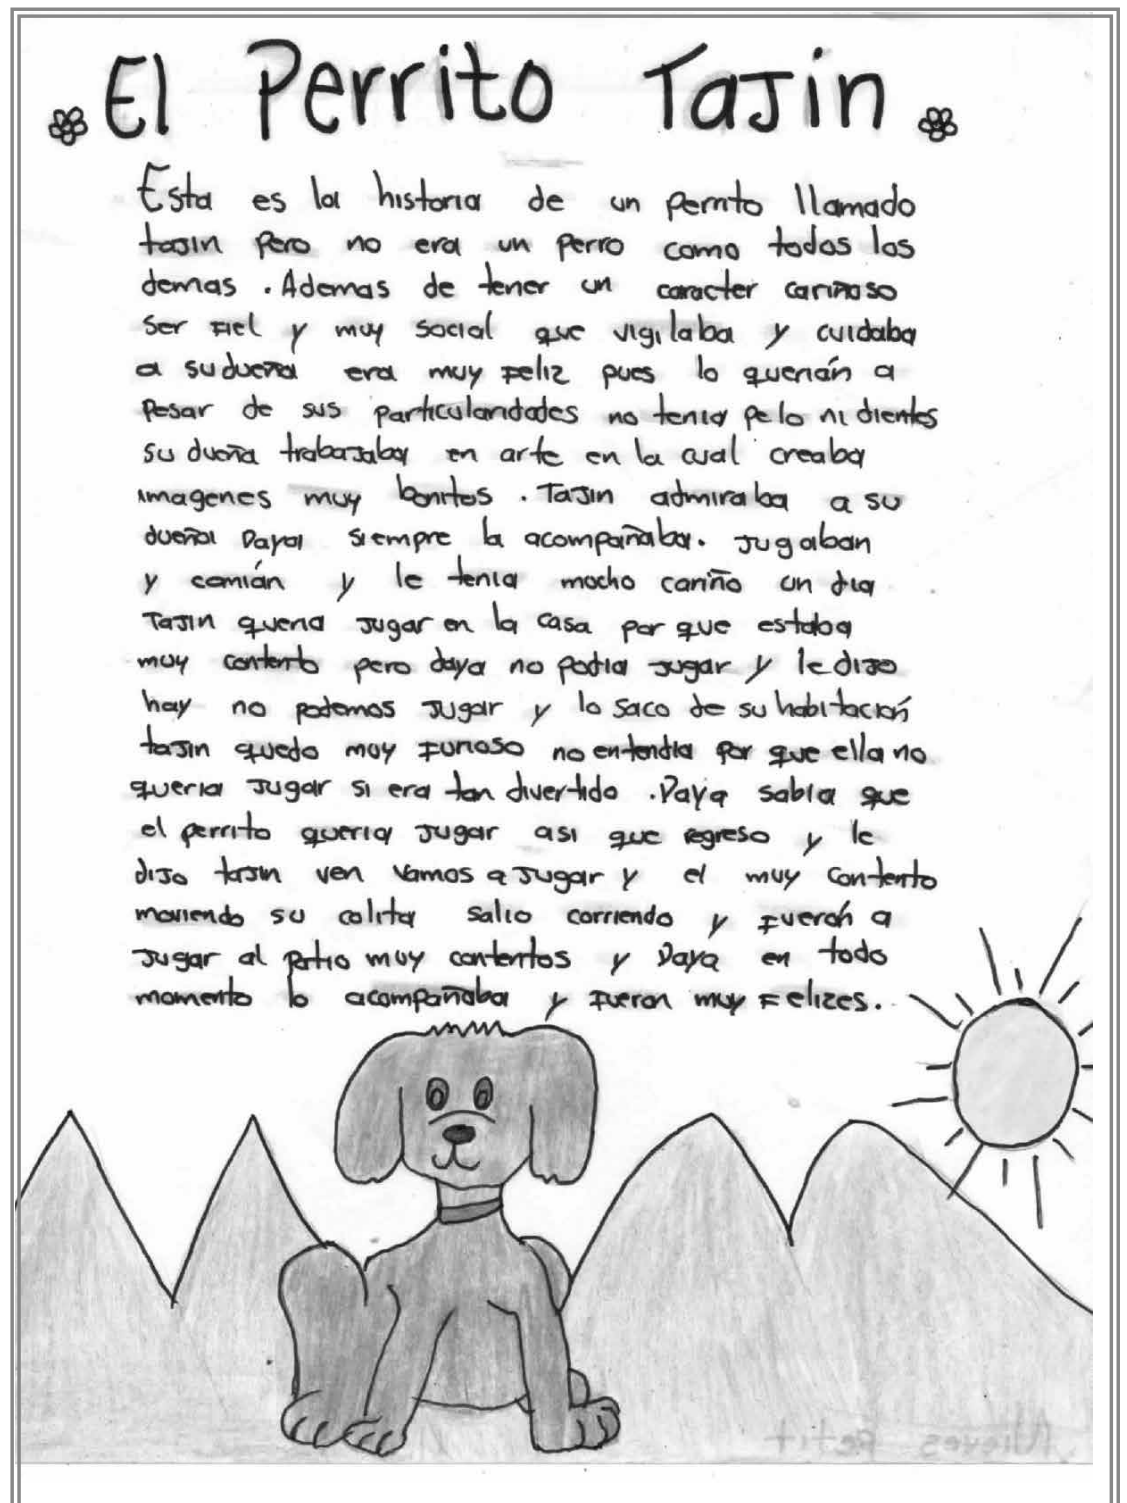 El Perrito Tajin
Esta es la historia de un perrito llamado
tajin pero no era un perro como todos los
demas . Ademas de tener un caracter cariñoso
ser fiel y muy social que vigilaba y cuidaba
a su dueña era muy feliz pues lo querián a
pesar de sus particularidades no tenia pelo ni dientes
su dueña trabajaba en arte en la cual creaba
imagenes muy bonitos . Tajin admiraba a su
dueña Daya siempre la acompañaba. Jugaban
y comián y le tenia mocho cariño un dia
Tajin queria jugar en la casa por que estaba
muy contento pero daya no podia jugar y le dijo
hay no podemos jugar y lo saco de su habitación
tajin quedo muy furioso no entendia por que ella no
queria jugar si era tan divertido . Daya sabia que
el perrito queria jugar asi que regreso y le
dijo tajin ven vamos a jugar y el muy contento
moviendo su colita salio corriendo y fuerón a
jugar al patio muy contentos y Daya en todo
momento lo acompañaba y fueron muy felizes.
Nieves Petit